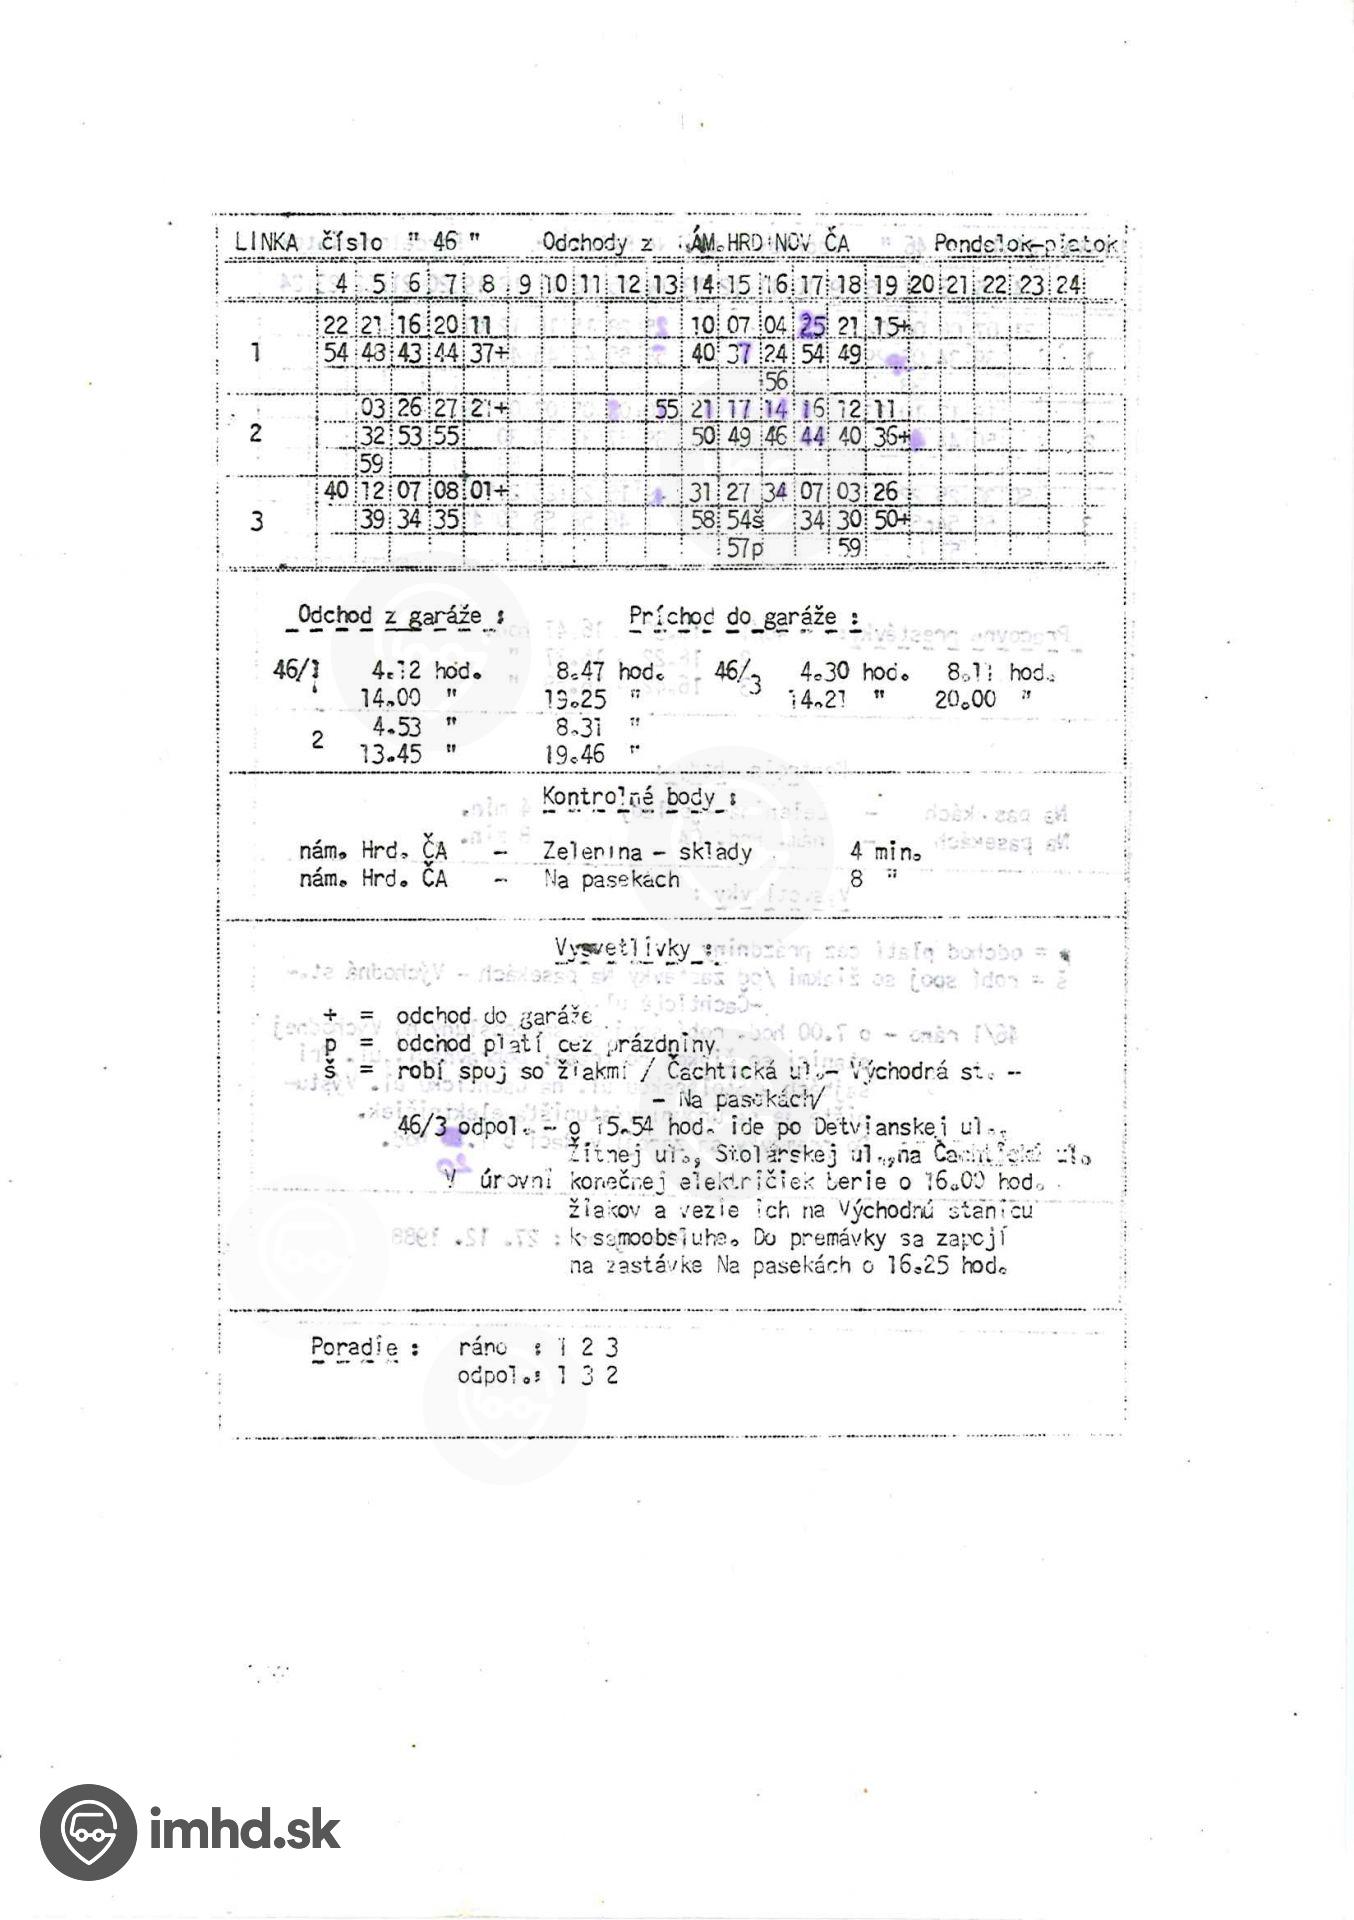 LINKA číslo " 46 " Odchody z ÁM.HRDINOV ČA Pondelok-piatok
4 5 6 7 8 9 10 11 12 13 14 15 16 17 18 19 20 21 22 23 24
22 21 16 20 11 10 07 04 25 21 15+
1 54 48 43 44 37+ 40 37 24 54 49
56
03 26 27 21+ 55 21 17 14 16 12 11
2 32 53 55 50 49 46 44 40 36+
59
40 12 07 08 01+ 31 27 34 07 03 26
3 39 34 35 58 54š 34 30 50+
57p 59
Odchod z garáže : Príchod do garáže :
46/1 4.12 hod. 8.47 hod. 46/3 4.30 hod. 8.11 hod.
14.00 " 19.25 " 14.21 " 20.00 "
4.53 " 8.31 "
2 13.45 " 19.46 "
Kontrolné body :
nám. Hrd. ČA - Zelenina - sklady 4 min.
nám. Hrd. ČA - Na pasekách 8 "
Vysvetlivky :
+ = odchod do garáže
p = odchod platí cez prázdniny
š = robí spoj so žiakmi / Čachtická ul.- Východná st. -
- Na pasekách/
46/3 odpol. - o 15.54 hod. ide po Detvianskej ul.,
Žitnej ul., Stolárskej ul.,na Čachtickú ul.
V úrovni konečnej električiek berie o 16.00 hod.
žiakov a vezie ich na Východnú stanicu
k samoobsluhe. Do premávky sa zapojí
na zastávke Na pasekách o 16.25 hod.
Poradie : ráno : 1 2 3
odpol.: 1 3 2
imhd.sk